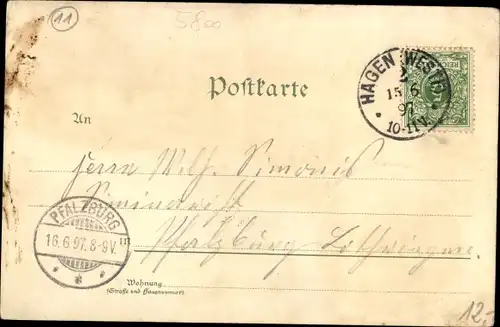 11
5800
Postkarte
HAGEN (WESTF)
2
15 6
97
10-11V.
REICHSPOST
An
Herrn Wilh. Simonis
Pfalzburg Lothringen
PFALZBURG
16.6.97. 8-9V.
in
Wohnung
(Straße und Hausnummer)
12,-